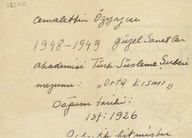 Cemalettin Özyazıcı
1948-1949 Güzel Sanatlar
Akademisi Türk Süsleme Şubesi
mezunu: „Orta Kısmı"
Doğum tarihi:
ist: 1926